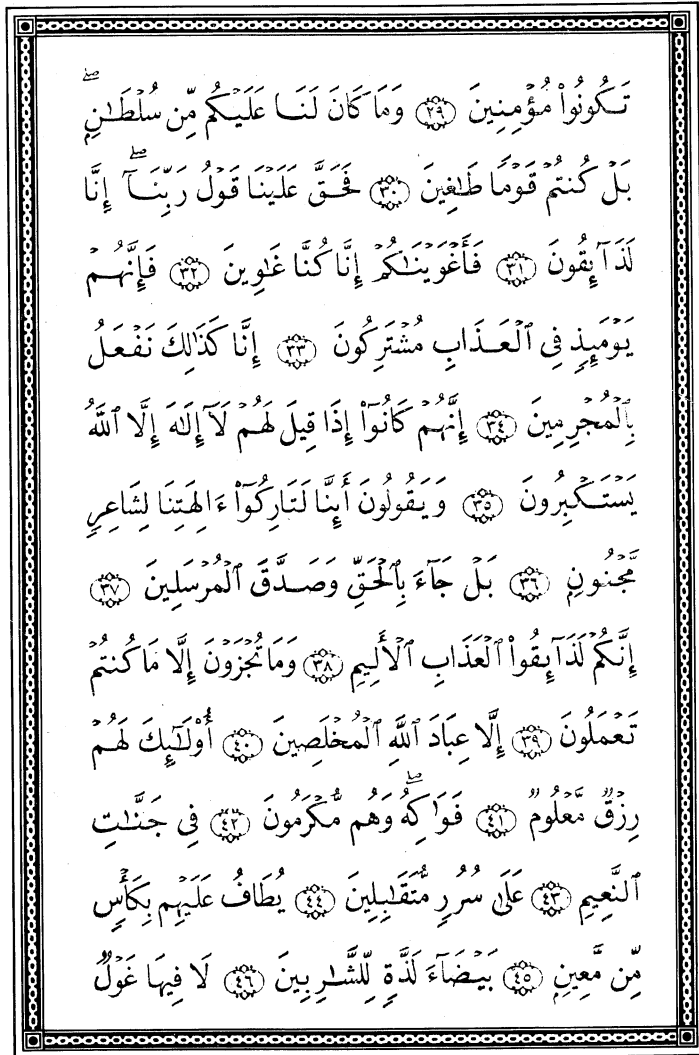 تَكُونُوا۟ مُؤْمِنِينَ ٢٩ وَمَا كَانَ لَنَا عَلَيْكُم مِّن سُلْطَـٰنٍۭ ۖ
بَلْ كُنتُمْ قَوْمًا طَـٰغِينَ ٣٠ فَحَقَّ عَلَيْنَا قَوْلُ رَبِّنَآ ۖ إِنَّا
لَذَآئِقُونَ ٣١ فَأَغْوَيْنَـٰكُمْ إِنَّا كُنَّا غَـٰوِينَ ٣٢ فَإِنَّهُمْ
يَوْمَئِذٍ فِى ٱلْعَذَابِ مُشْتَرِكُونَ ٣٣ إِنَّا كَذَٰلِكَ نَفْعَلُ
بِٱلْمُجْرِمِينَ ٣٤ إِنَّهُمْ كَانُوٓا۟ إِذَا قِيلَ لَهُمْ لَآ إِلَـٰهَ إِلَّا ٱللَّهُ
يَسْتَكْبِرُونَ ٣٥ وَيَقُولُونَ أَئِنَّا لَتَارِكُوٓا۟ ءَالِهَتِنَا لِشَاعِرٍ
مَّجْنُونٍۭ ٣٦ بَلْ جَآءَ بِٱلْحَقِّ وَصَدَّقَ ٱلْمُرْسَلِينَ ٣٧
إِنَّكُمْ لَذَآئِقُوا۟ ٱلْعَذَابِ ٱلْأَلِيمِ ٣٨ وَمَا تُجْزَوْنَ إِلَّا مَا كُنتُمْ
تَعْمَلُونَ ٣٩ إِلَّا عِبَادَ ٱللَّهِ ٱلْمُخْلَصِينَ ٤٠ أُو۟لَـٰٓئِكَ لَهُمْ
رِزْقٌ مَّعْلُومٌ ٤١ فَوَٰكِهُ ۖ وَهُم مُّكْرَمُونَ ٤٢ فِى جَنَّـٰتِ
ٱلنَّعِيمِ ٤٣ عَلَىٰ سُرُرٍ مُّتَقَـٰبِلِينَ ٤٤ يُطَافُ عَلَيْهِم بِكَأْسٍ
مِّن مَّعِينٍۭ ٤٥ بَيْضَآءَ لَذَّةٍ لِّلشَّـٰرِبِينَ ٤٦ لَا فِيهَا غَوْلٌ